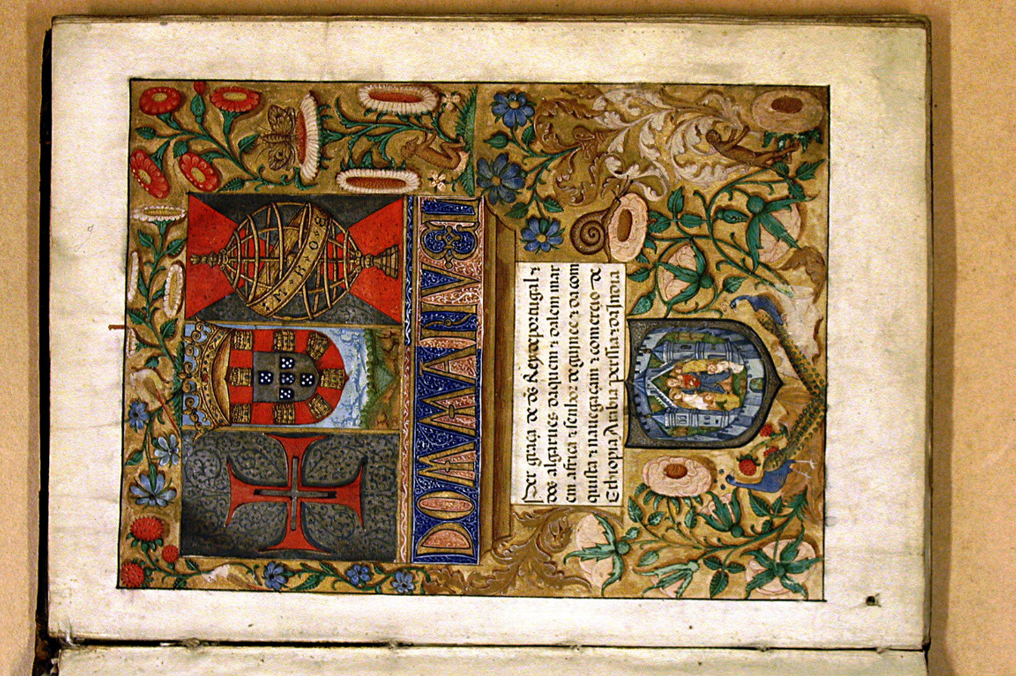 DOM MANVEL
Per graça de ds Rey de portugal ⁊
dos algarues daquem ⁊ dalem mar
em affrica ⁊ senhor de guinee ⁊ da com
quista ⁊ nauegaçam ⁊ comercio de
Ethiopia Arabia persia ⁊ da Jndia